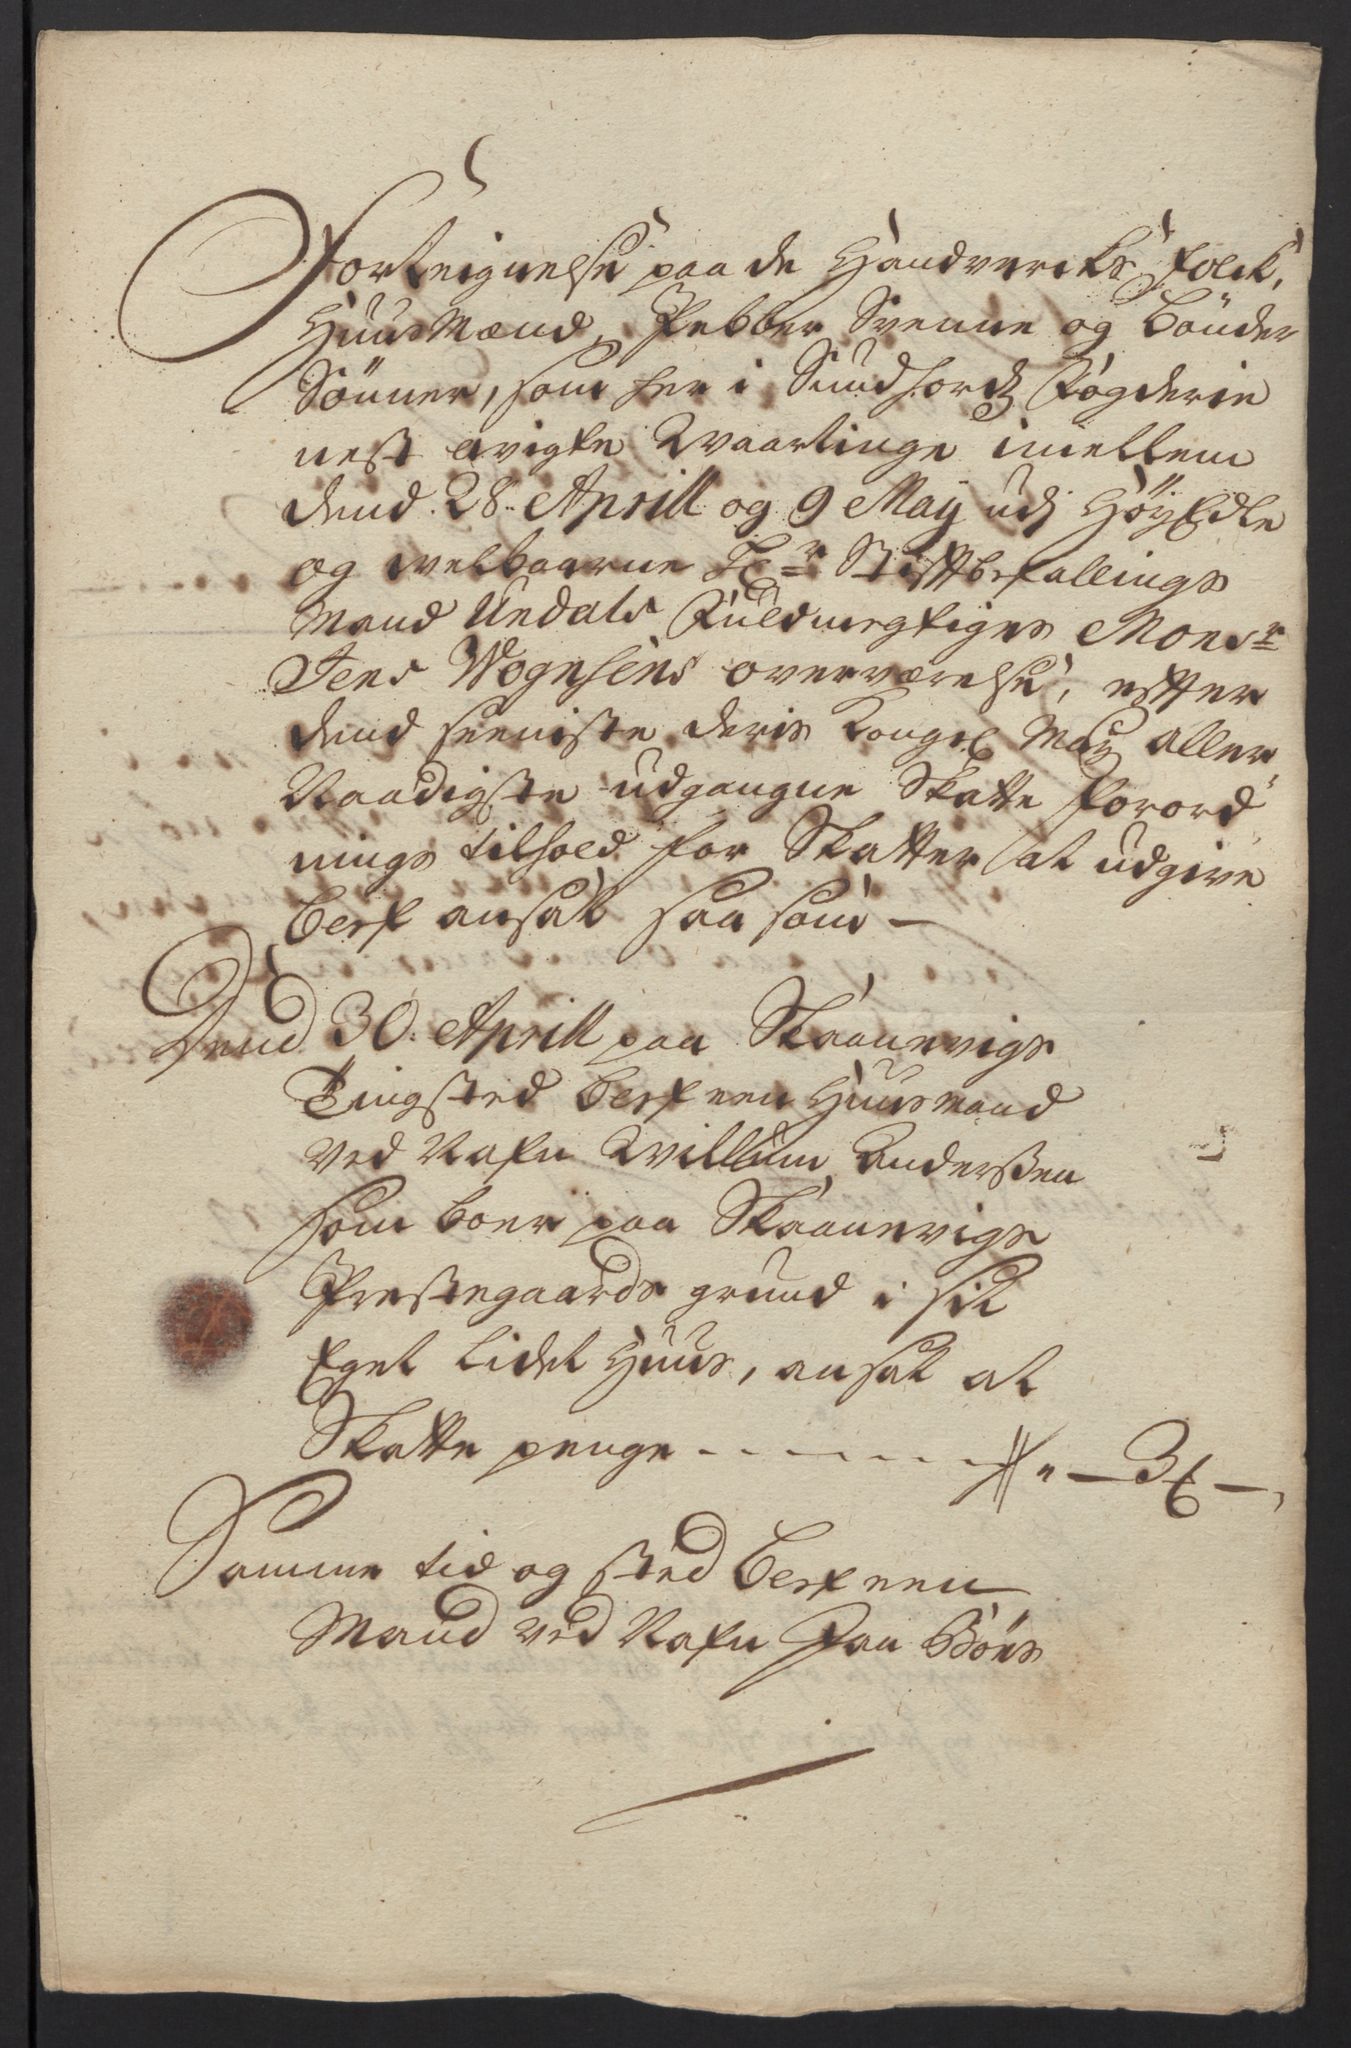 Forteignelse paa de Handvercks folck,
HuusMænd, Pebber Svenne og Bönder
Sönner, som her i Sundhordl Fögderie
nest avigte Waartinge imellem
dend 28. Aprill og 9 Maÿ udj HöÿEdle
og velbaarne Hr Stiftbefallings
Mand Undals Fuldmegtiges Monsr
Jens Wognsens overværelse, efter
dend seeniste deris Kongel May aller
Naadigste udgangne Skatte forord
nings tilhold for Skatter at udgive
blef ansat saa som
Dend 30. Aprill paa Skaanevigs
Tingsted blef een Huusmand
ved Nafn Willum Anderssen
som boer paa Skaanevigs
Prestegaards grund i sit
Eget lidet Huus, ansat at
Skatte penge - - - - - - " — 3 —
Samme tid og sted blef een
Mand ved Nafn Paa Böns